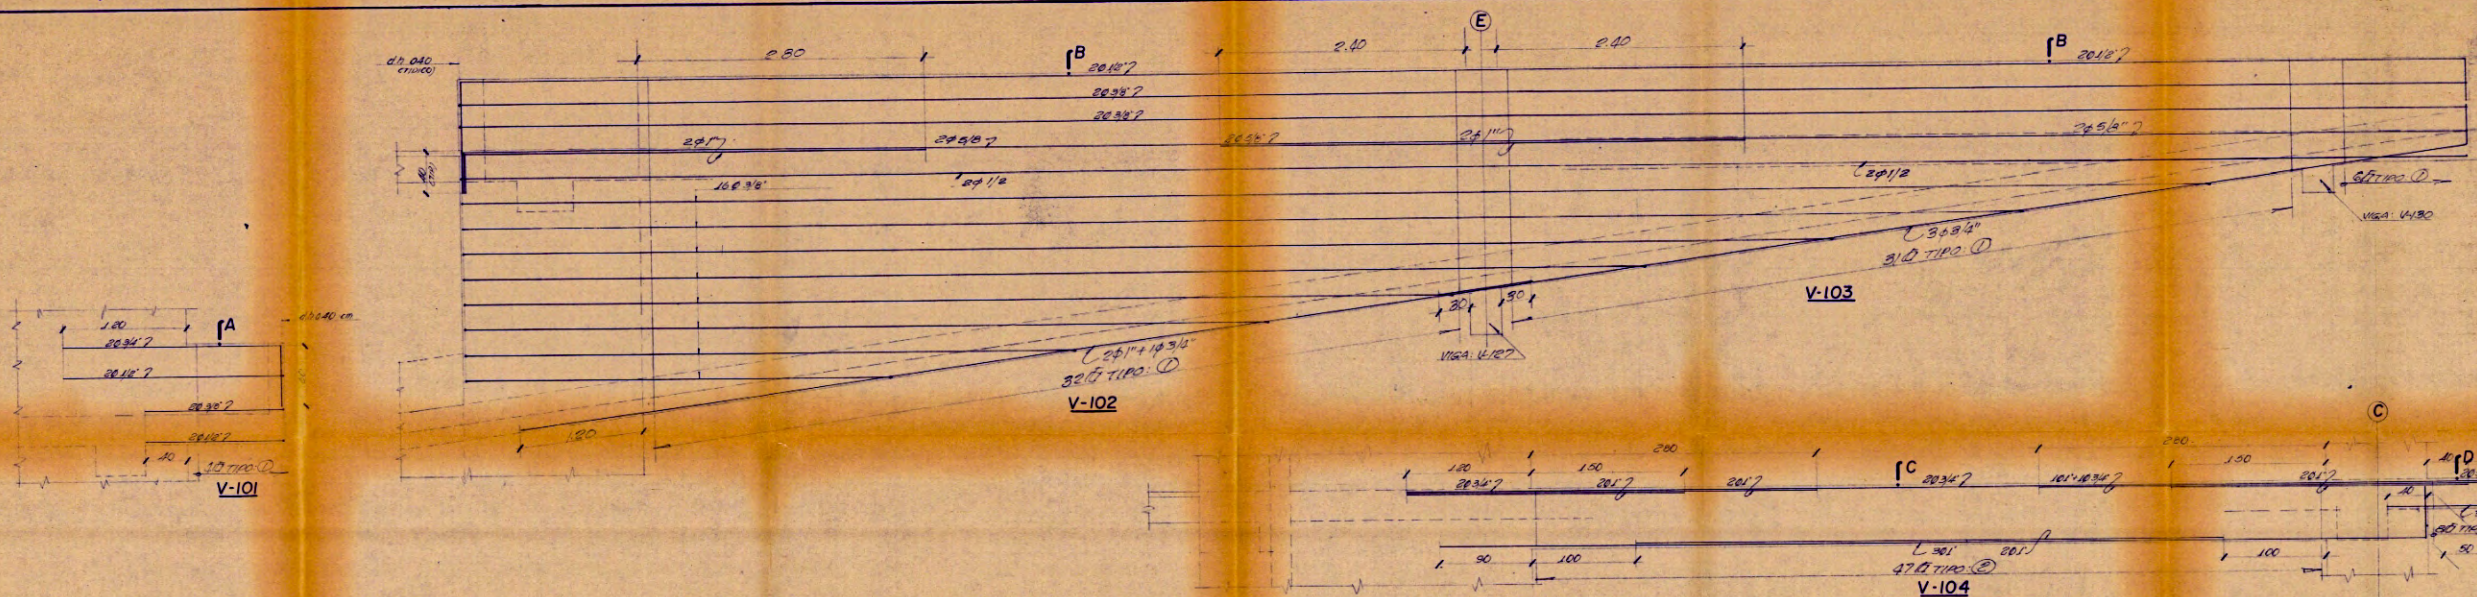 E
2.80
B
2.40
2.40
B
2Ø1/2"
2Ø1/2"
2Ø3/8"
2Ø3/8"
2Ø1"
2Ø5/8"
2Ø5/8"
2Ø1"
2Ø5/8"
16Ø3/8"
2Ø1/2
2Ø1/2
6 TIPO: 1
VIGA: V-130
3Ø3/4"
31 TIPO: 1
V-103
30
30
VIGA: V-127
2Ø1"+1Ø3/4"
32 TIPO: 1
V-102
1.20
1.20
A
2Ø3/4"
2Ø1/2"
2Ø3/8"
2Ø1/2"
40
TIPO: 1
V-101
C
280
280
120
150
C
150
40
D
2Ø3/4"
2Ø1"
2Ø1"
2Ø3/4"
1Ø1"+1Ø3/4"
2Ø1"
40
90
100
3Ø1"
2Ø1"
100
50
47 TIPO: 2
V-104